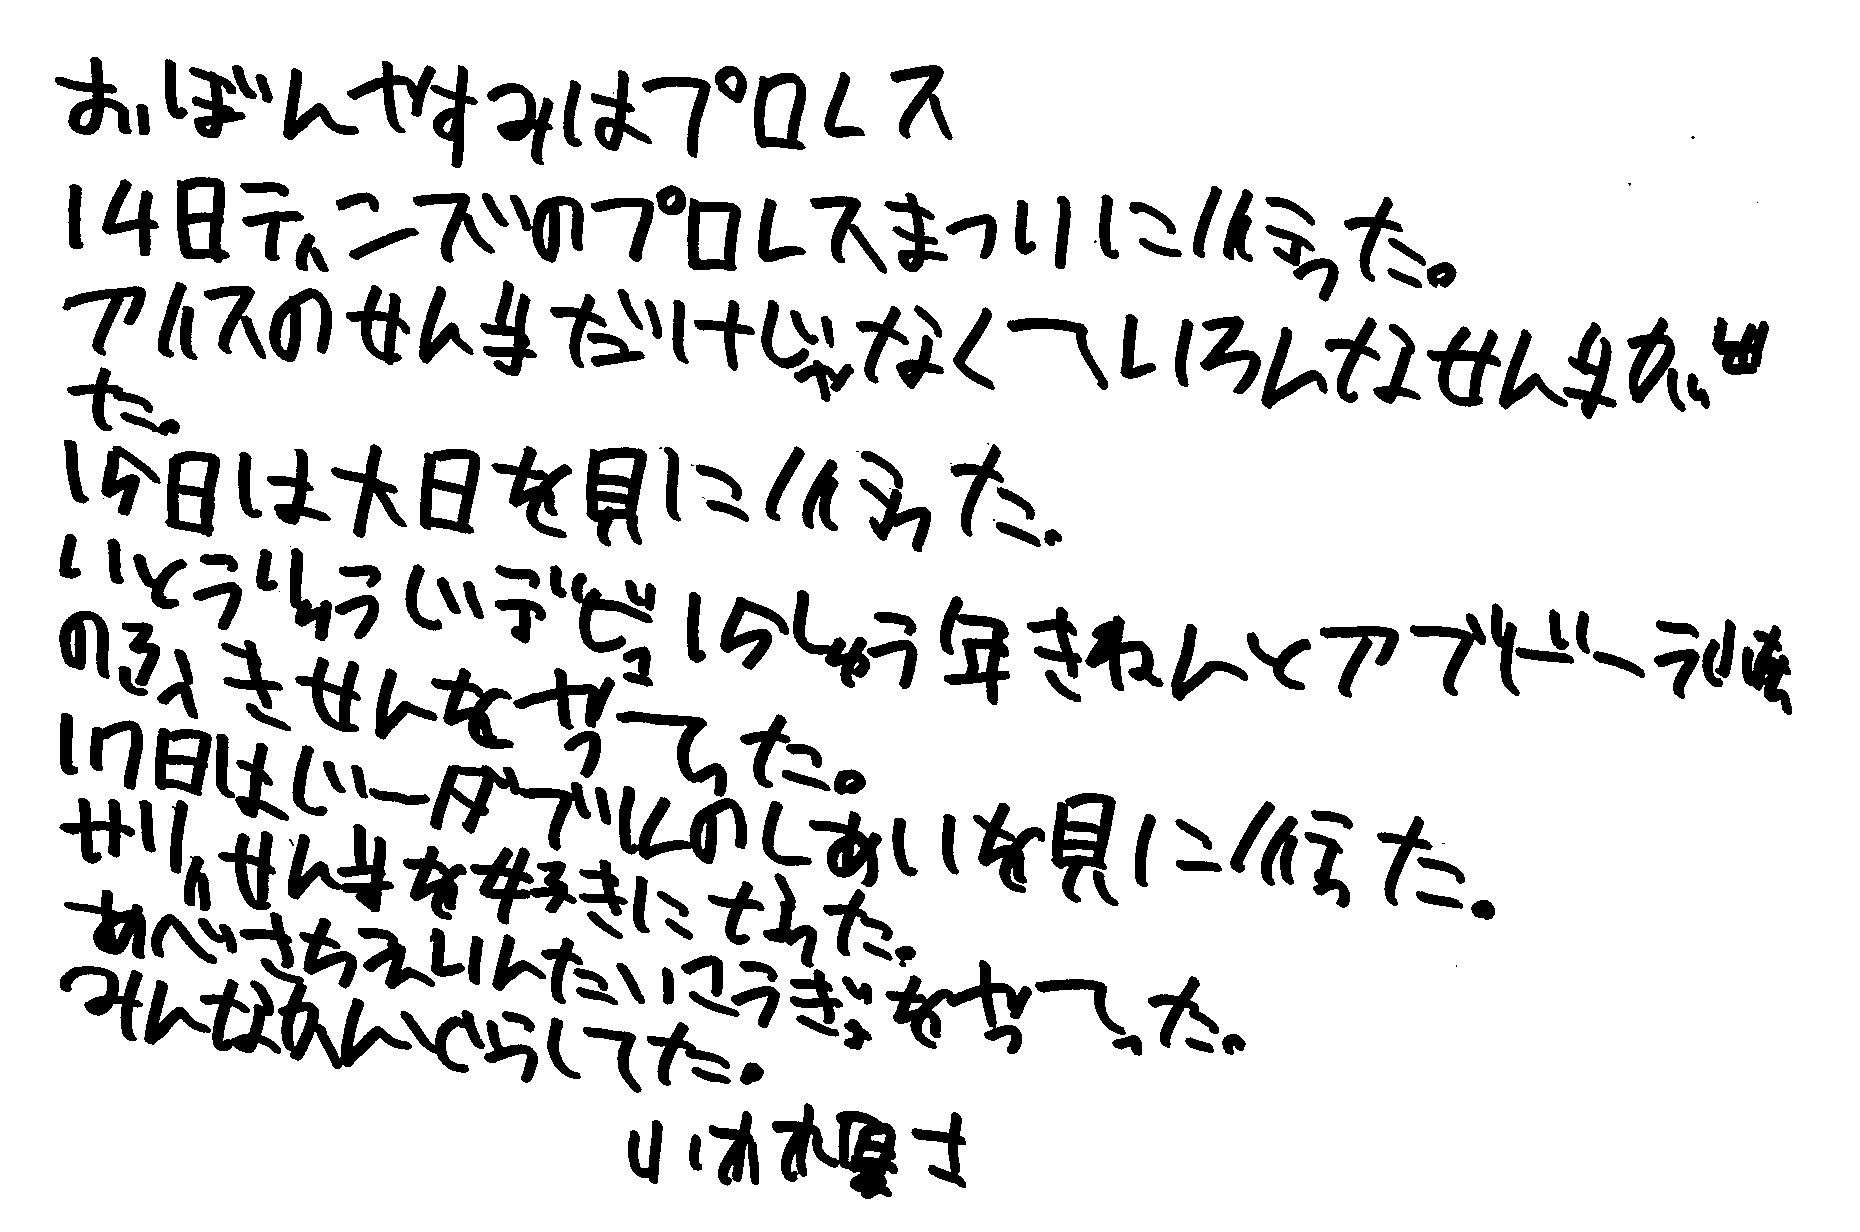 おぼんやすみはプロレス
14日ディーンズのプロレスまつりに行った。
アルスのせん手だけじゃなくていろんなせん手が出
た。
15日は大日を見に行った。
いとうりゅうじデビュー15しゅう年きねんとアブドーラ小林
のふっきせんをやってた。
17日はジーダブルのしあいを見に行った。
せりせん手を好きになった。
あべさちえいんたいこうぎょをやってった。
みんなかんどらしてた。